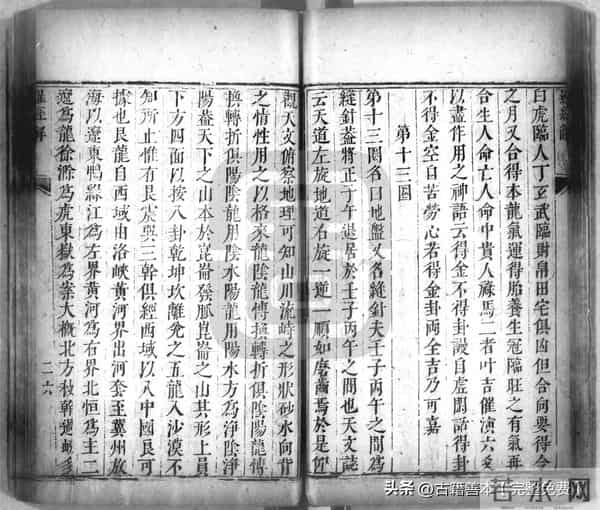 白虎臨人丁玄武臨財帛田宅俱凶但合向要得令
之月又合得本龍氣運得胎養生冠臨旺之有氣再
合生人命亡人命中貴人祿馬二者叶吉催演六爻
以盡作用之神語云得金不得卦謾自虛閒話得卦
不得金空自苦勞心若得金卦兩全吉乃可嘉
第十三圖
第十三圖名曰地盤又名縫針夫壬子丙午之間爲
縫針葢將正子午退居於壬子丙午之間也天文誌
云天道左旋地道右旋一逆一順如磨蕩焉於是仰
觀天文俯察地理可知山川流峙之形狀砂水向背
之情性用之以格來龍陰龍傳換轉折俱陰陽龍傳
換轉折俱陽陰龍用陰水陽龍用陽水方爲淨陰淨
陽葢天下之山本於崑崙發脈崑崙之山其形上員
下方四面以按八卦乾坤坎離兌之五龍入沙漠不
知所止惟有艮震巽三幹俱經西域以入中國良可
據也艮龍自西域由洛峽黃河界出河套至冀州放
海以遼東鴨綠江爲左界黃河爲右界北恒爲主二
遼爲龍徐滁爲虎東嶽爲案大槪北方枝幹
二六
頭条 @古籍善本